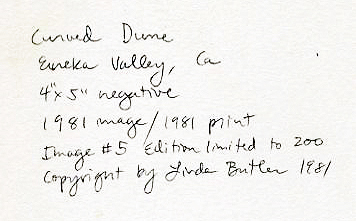 Curved Dune
Eureka Valley, Ca
4"x 5" negative
1981 image/1981 print
Image #5 Edition limited to 200
Copyright by Linda Butler 1981